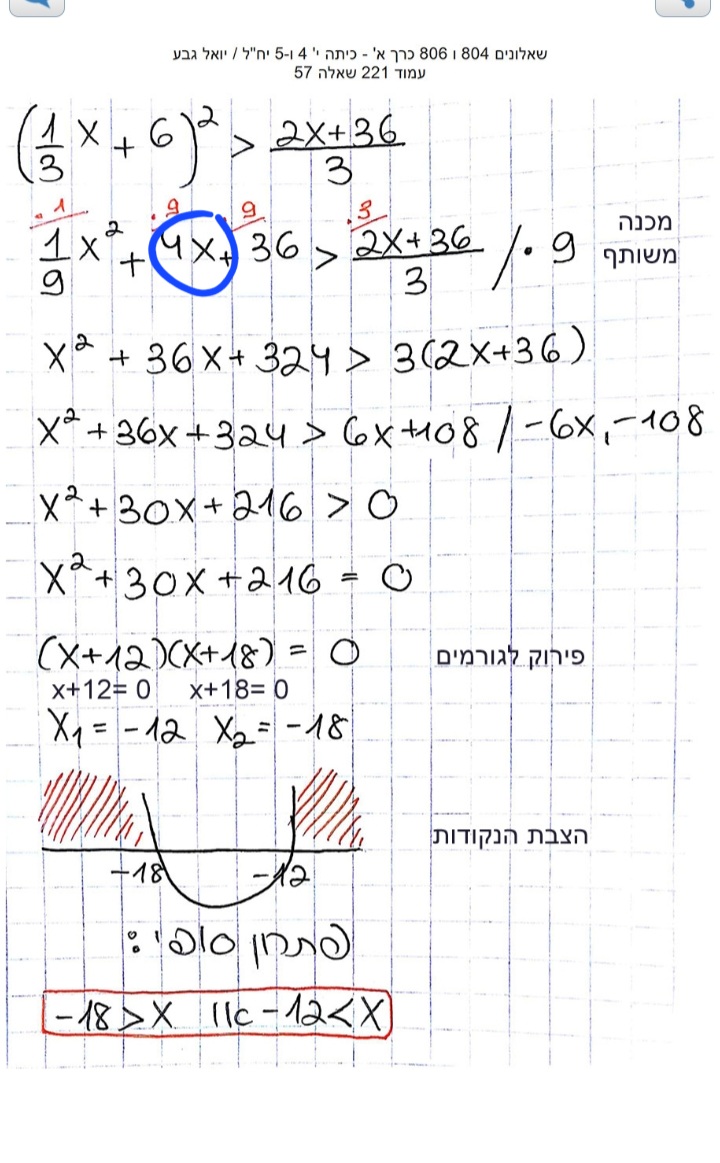 שאלונים 804 ו 806 כרך א' - כיתה י' 4 ו-5 יח"ל / יואל גבע
עמוד 221 שאלה 57
(1/3 x + 6)² > (2x+36)/3
.1 .9 .9 .3
1/9 x² + 4x + 36 > (2x+36)/3 /·9 מכנה משותף
x² + 36x + 324 > 3(2x+36)
x² + 36x + 324 > 6x + 108 / -6x, -108
x² + 30x + 216 > 0
x² + 30x + 216 = 0
(x+12)(x+18) = 0 פירוק לגורמים
x+12= 0 x+18= 0
x₁ = -12 x₂ = -18
הצבת הנקודות
-18 -12
פתרון סופי:
-18 > x או -12 < x